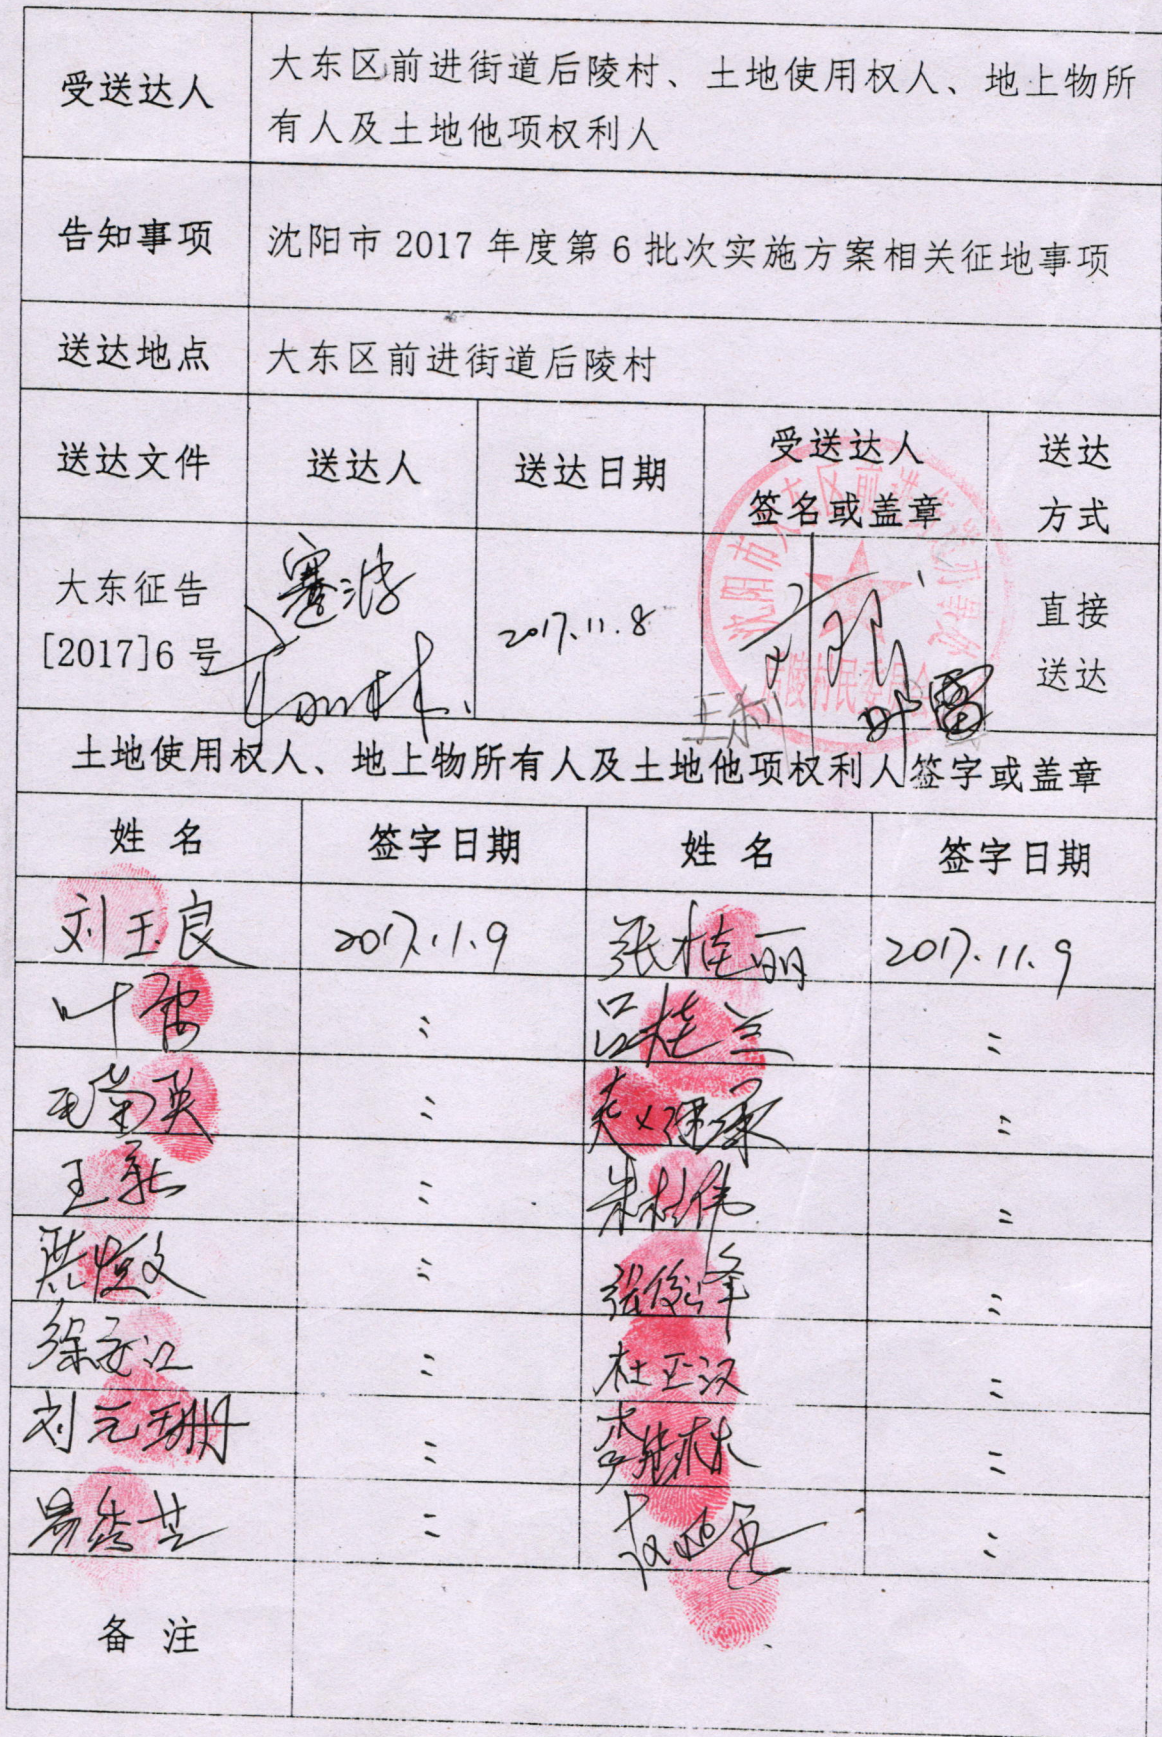 受送达人
大东区前进街道后陵村、土地使用权人、地上物所
有人及土地他项权利人
告知事项
沈阳市 2017 年度第 6 批次实施方案相关征地事项
送达地点
大东区前进街道后陵村
送达文件
送达人
送达日期
受送达人
签名或盖章
送达
方式
大东征告
[2017]6 号
2017.11.8
后陵村民委员会
直接
送达
土地使用权人、地上物所有人及土地他项权利人签字或盖章
姓 名
签字日期
姓 名
签字日期
刘玉良
2017.11.9
张桂丽
2017.11.9
叶雷
〃
吕桂兰
〃
〃
〃
〃
〃
〃
张俊泽
〃
〃
杜正汉
〃
刘元珊
〃
〃
〃
〃
备 注